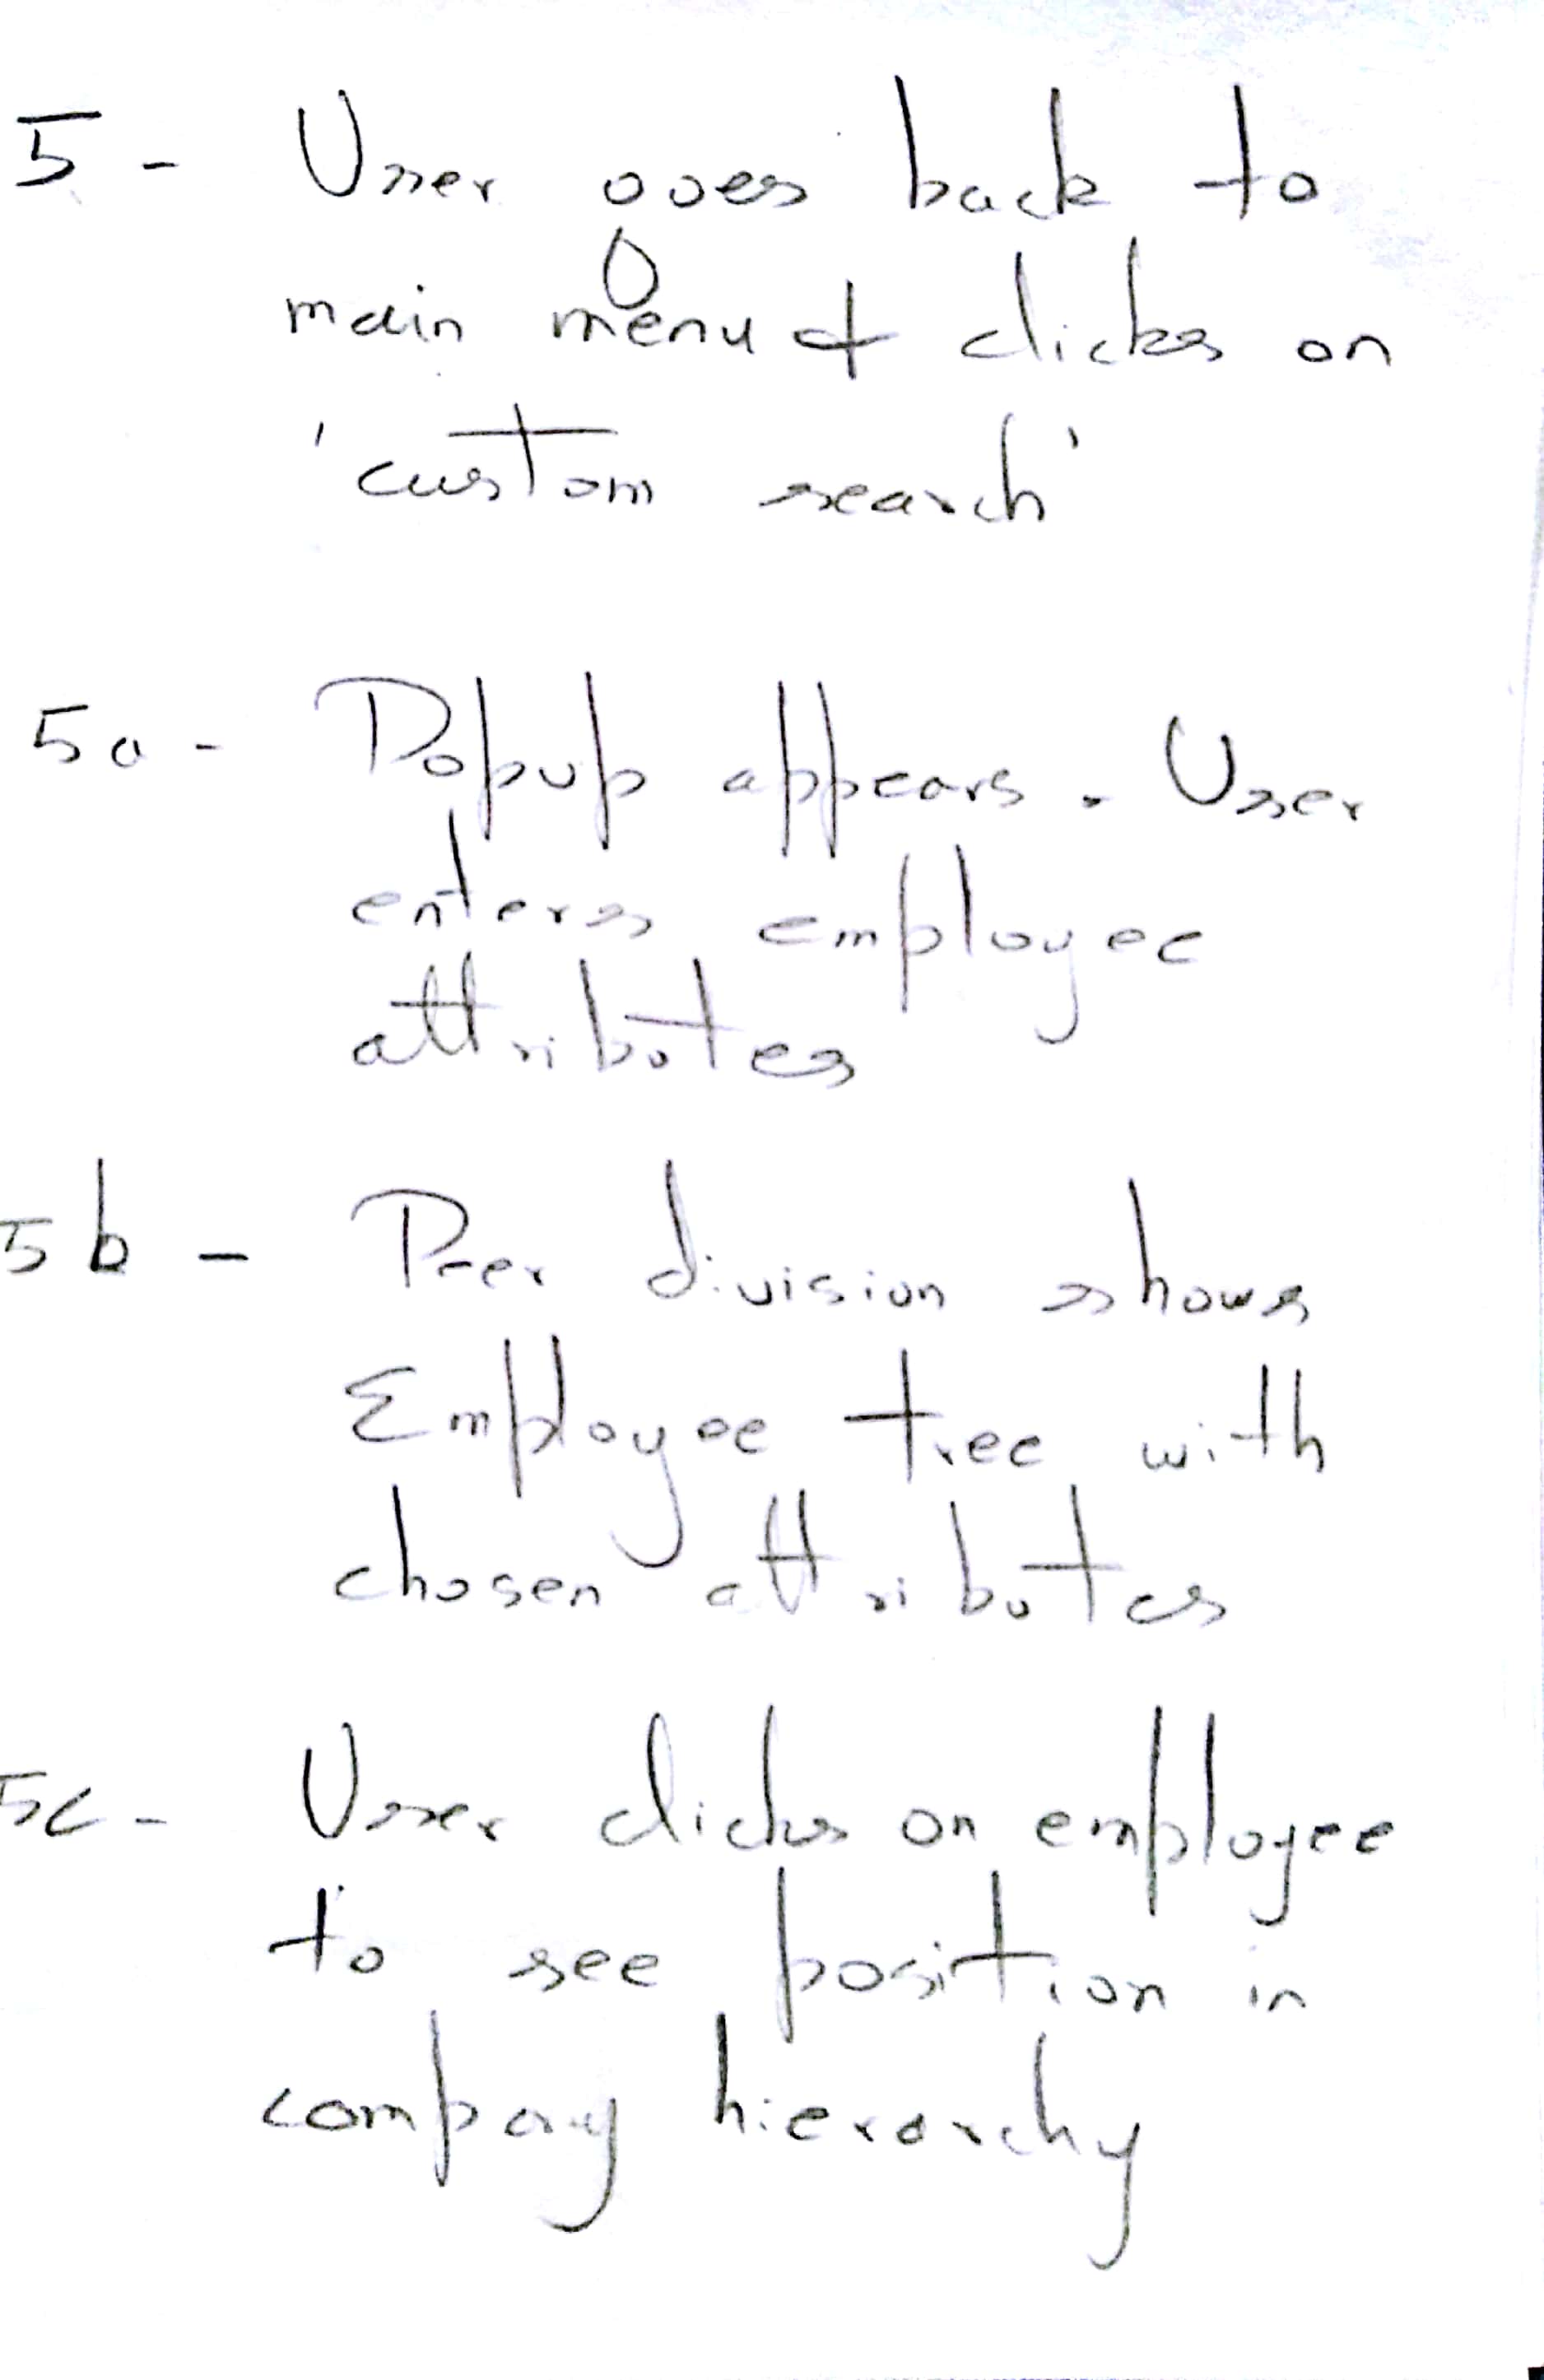 5 - User goes back to
main menu & clicks on
'custom search'
5a - Popup appears. User
enters employee
attributes
5b - Peer division shows
Employee tree with
chosen attributes
5c - User clicks on employee
to see position in
company hierarchy